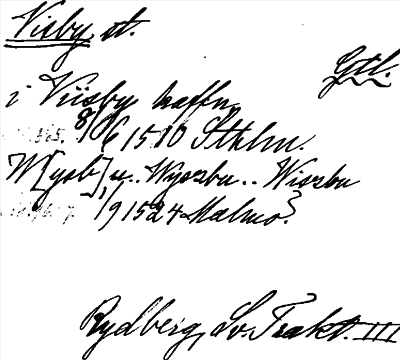 Visby st.
Gtl.
i Viisby haffn
8/6 1510 Sthlm.
W[ysb]u.. Wyszbu.. Wiszbu
1/9 1524 Malmö.
Rydberg, Sv. Trakt. III